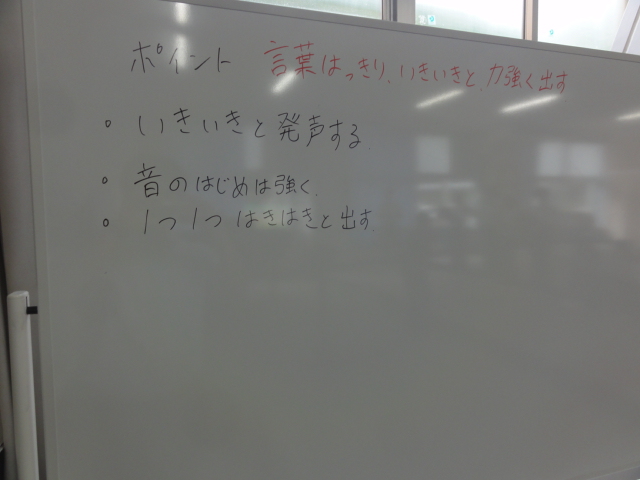 ポイント 言葉はっきり、いきいきと、力強く出す
・いきいきと発声する
・音のはじめは強く、
・1つ1つはきはきと出す